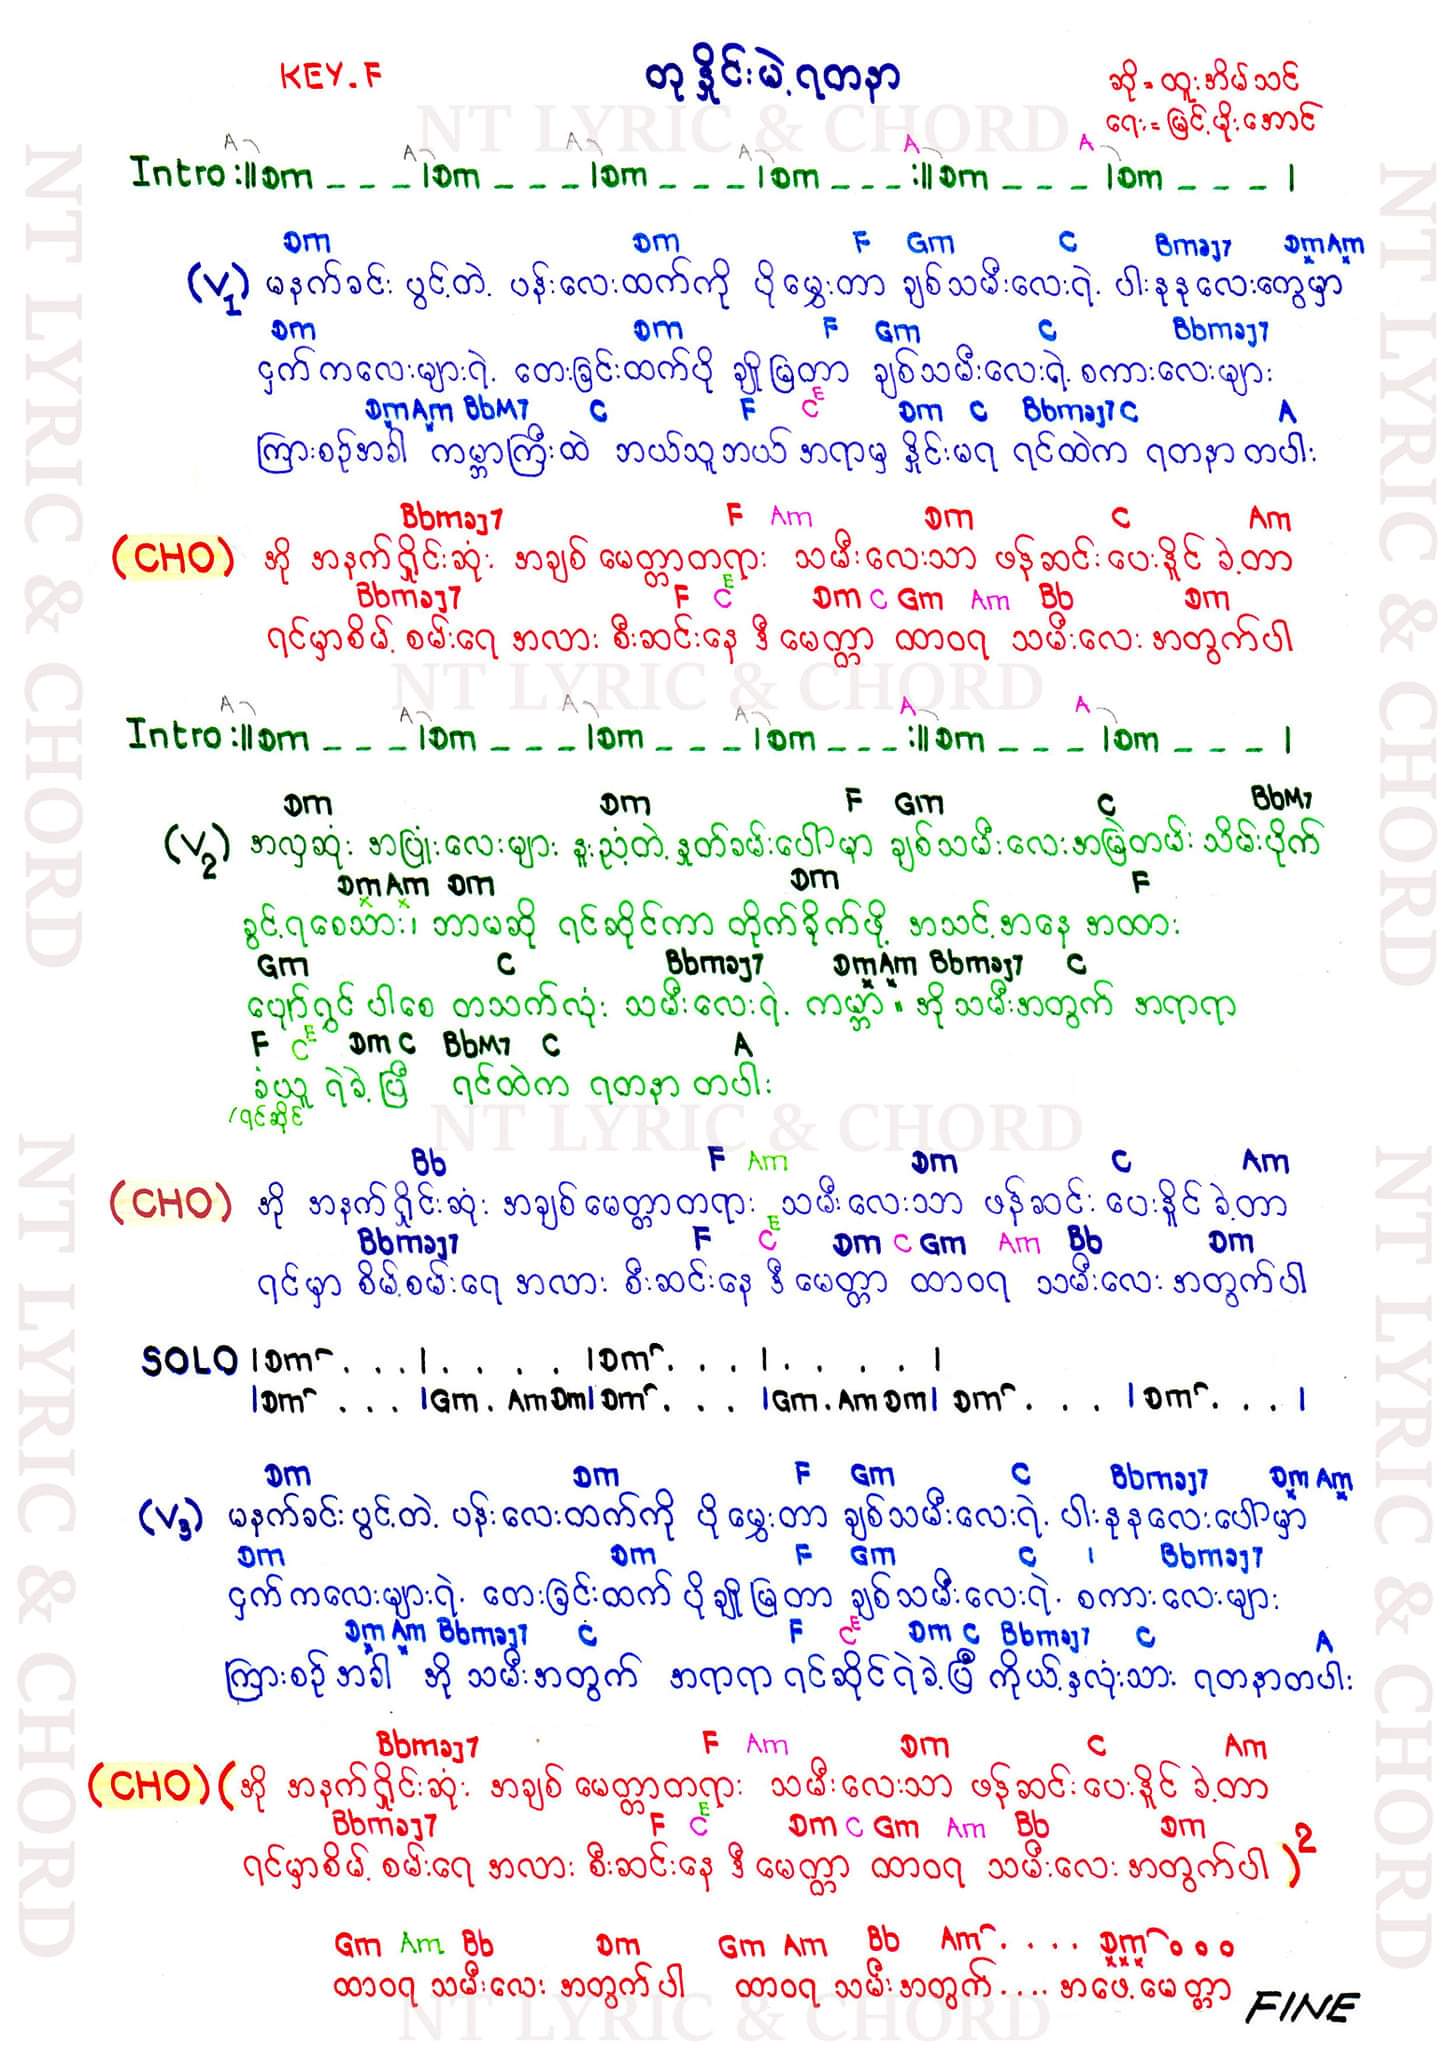 KEY.F
တုနှိုင်းမဲ့ရတနာ
ဆို = ထူးအိမ်သင်
ရေး = မြင့်မိုးအောင်
NT LYRIC & CHORD
A A A A A A
Intro :||Dm _ _ _ |Dm _ _ _ |Dm _ _ _ |Dm _ _ _ :||Dm _ _ _ |Dm _ _ _ |
Dm Dm F Gm C Bmaj7 Dm Am
(V1) မနက်ခင်း ပွင့်တဲ့ ပန်းလေးထက်ကို ပိုမွှေးတာ ချစ်သမီးလေးရဲ့ ပါးနုနုလေးတွေမှာ
Dm Dm F Gm C Bbmaj7
ငှက်ကလေးများရဲ့ တေးခြင်းထက်ပို ချိုမြတာ ချစ်သမီးလေးရဲ့ စကားလေးများ
Dm Am BbM7 C F C E Dm C Bbmaj7 C A
ကြားစဉ်အခါ ကမ္ဘာကြီးထဲ ဘယ်သူဘယ်အရာမှ နှိုင်းမရ ရင်ထဲက ရတနာတပါး
Bbmaj7 F Am Dm C Am
(CHO) အို အနက်ရှိုင်းဆုံး အချစ်မေတ္တာတရား သမီးလေးသာ ဖန်ဆင်းပေးနိူင်ခဲ့တာ
Bbmaj7 F C E Dm C Gm Am Bb Dm
ရင်မှာစိမ့်စမ်းရေ အလား စီးဆင်းနေ ဒီမေတ္တာ ထာဝရ သမီးလေး အတွက်ပါ
NT LYRIC & CHORD
A A A A A A
Intro :||Dm _ _ _ |Dm _ _ _ |Dm _ _ _ |Dm _ _ _ :||Dm _ _ _ |Dm _ _ _ |
Dm Dm F Gm C BbM7
(V2) အလှဆုံး အပြုံးလေးများ နူးညံ့တဲ့ နှုတ်ခမ်းပေါ်မှာ ချစ်သမီးလေးအမြဲတမ်း သိမ်းပိုက်
Dm Am Dm Dm F
ခွင့်ရစေသား၊ ဘာမဆို ရင်ဆိုင်ကာ တိုက်ခိုက်ဖို့ အသင့်အနေ အထား
Gm C Bbmaj7 Dm Am Bbmaj7 C
ပျော်ရွှင်ပါစေ တသက်လုံး သမီးလေးရဲ့ ကမ္ဘာ။ အိုသမီးအတွက် အရာရာ
F C E Dm C BbM7 C A
ခံယူရဲခဲ့ပြီ ရင်ထဲက ရတနာတပါး
/ရင်ဆိုင်
NT LYRIC & CHORD
Bb F Am Dm C Am
(CHO) အို အနက်ရှိုင်းဆုံး အချစ်မေတ္တာတရား သမီးလေးသာ ဖန်ဆင်း ပေးနိူင်ခဲ့တာ
Bbmaj7 F C E Dm C Gm Am Bb Dm
ရင်မှာ စိမ့်စမ်းရေ အလား စီးဆင်းနေ ဒီမေတ္တာ ထာဝရ သမီးလေး အတွက်ပါ
SOLO |Dm . . . | . . . . |Dm . . . | . . . . . |
|Dm . . . |Gm . Am Dm|Dm . . . |Gm . Am Dm| Dm . . . | Dm . . . |
Dm Dm F Gm C Bbmaj7 Dm Am
(V3) မနက်ခင်းပွင့်တဲ့ ပန်းလေးထက်ကို ပိုမွှေးတာ ချစ်သမီးလေးရဲ့ ပါးနုနလေးပေါ်မှာ
Dm Dm F Gm C Bbmaj7
ငှက်ကလေးများရဲ့ တေးခြင်းထက်ပိုချိုမြတာ ချစ်သမီးလေးရဲ့ စကားလေးများ
Dm Am Bbmaj7 C F C E Dm C Bbmaj7 C A
ကြားစဉ်အခါ အိုသမီးအတွက် အရာရာရင်ဆိုင်ရဲခဲ့ပြီ ကိုယ့်နှလုံးသား ရတနာတပါး
Bbmaj7 F Am Dm C Am
(CHO) (အို အနက်ရှိုင်းဆုံး အချစ်မေတ္တာတရား သမီးလေးသာ ဖန်ဆင်းပေးနိူင်ခဲ့တာ
Bbmaj7 F C E Dm C Gm Am Bb Dm
ရင်မှာစိမ့်စမ်းရေ အလား စီးဆင်းနေ ဒီမေတ္တာ ထာဝရ သမီးလေး အတွက်ပါ )2
Gm Am Bb Dm Gm Am Bb Am . . . . Dm o o o
ထာဝရ သမီးလေး အတွက်ပါ ထာဝရ သမီးအတွက် .... အဖေ့မေတ္တာ
FINE
NT LYRIC & CHORD
NT LYRIC & CHORD
NT LYRIC & CHORD
NT LYRIC & CHORD
NT LYRIC & CHORD